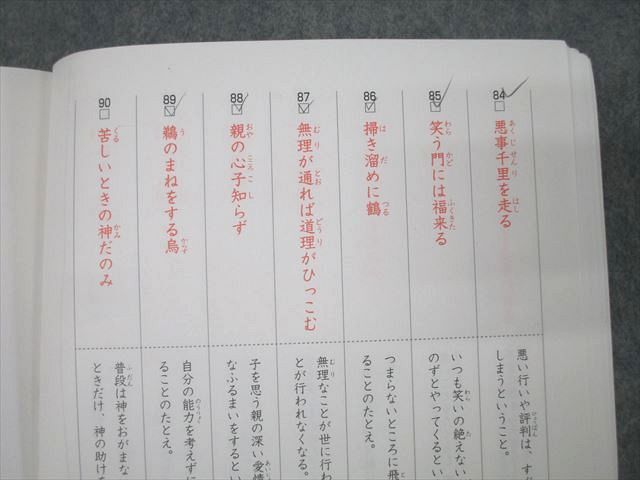 84
悪事千里を走る
悪い行いや評判は、す
しまうということ。
85
笑う門には福来る
いつも笑いの絶えない
のずとやってくるとい
86
掃き溜めに鶴
つまらないところに飛
ることのたとえ。
87
無理が通れば道理がひっこむ
無理なことが世に行わ
とが行われなくなる。
88
親の心子知らず
子を思う親の深い愛情
なふるまいをするとい
89
鵜のまねをする烏
自分の能力を考えずに
ることのたとえ。
90
苦しいときの神だのみ
普段は神をおがまな
ときだけ、神の助けを